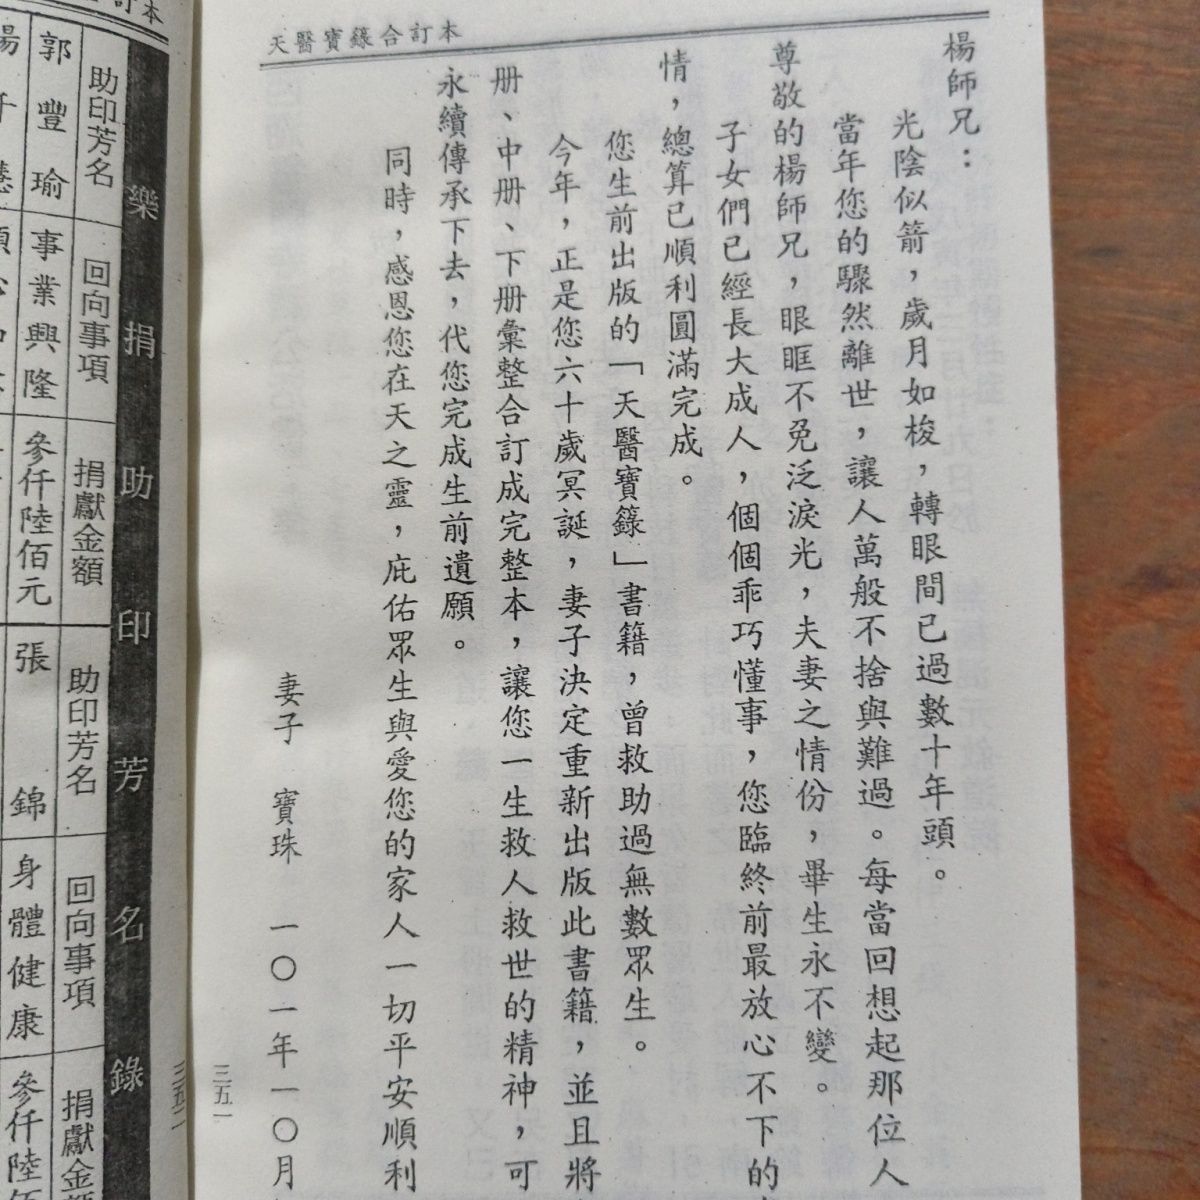 天醫寶籙合訂本
楊師兄：
光陰似箭，歲月如梭，轉眼間已過數十年頭。
當年您的驟然離世，讓人萬般不捨與難過。每當回想起那位人
尊敬的楊師兄，眼眶不免泛淚光，夫妻之情份，畢生永不變。
子女們已經長大成人，個個乖巧懂事，您臨終前最放心不下的
情，總算已順利圓滿完成。
您生前出版的「天醫寶籙」書籍，曾救助過無數眾生。
今年，正是您六十歲冥誕，妻子決定重新出版此書籍，並且將
册、中册、下册彙整合訂成完整本，讓您一生救人救世的精神，可
永續傳承下去，代您完成生前遺願。
同時，感恩您在天之靈，庇佑眾生與愛您的家人一切平安順利
妻子 寶珠 一〇一年一〇月
三五一
訂本
樂捐助印芳名錄
助印芳名 回向事項 捐獻金額 助印芳名 回向事項 捐獻金
郭豐瑜 事業興隆 參仟陸佰元 張錦 身體健康 參仟陸
三五二